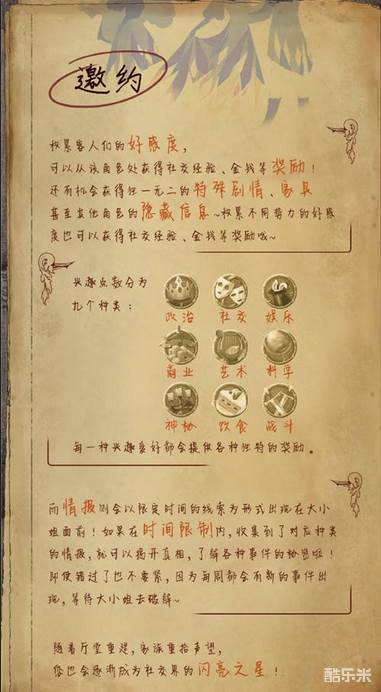 邀约
积累客人们的好感度,
可以从该角色处获得社交经验、金钱等奖励!
还有机会获得独一无二的特殊剧情、家具
甚至其他角色的隐藏信息~积累不同势力的好感
度也可以获得社交经验、金钱等奖励哦~
兴趣点数分为
九个种类:
政治 社交 娱乐
商业 艺术 科学
神秘 饮食 战斗
每一种兴趣喜好都会提供各种独特的奖励。
而情报则会以限定时间的线索为形式出现在大小
姐面前!如果在时间限制内,收集到了对应种类
的情报,就可以揭开真相,了解各种事件的秘密啦!
即使错过了也不要紧,因为每周都会有新的事件出
现,等待大小姐去破解~
随着厅堂重建,家族重拾声望,
您也会逐渐成为社交界的闪亮之星!
酷乐米